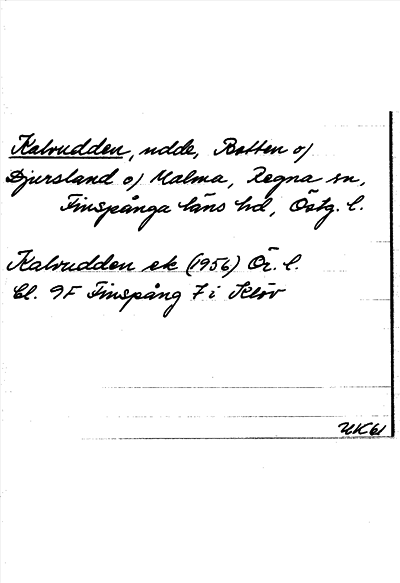 Kalvudden, udde, Botten o/
Djursland o/ Malma, Regna sn,
Finspånga läns hd, Östg. l.
Kalvudden ek (1956) Ör. l.
bl. 9F Finspång 7 i
UK61